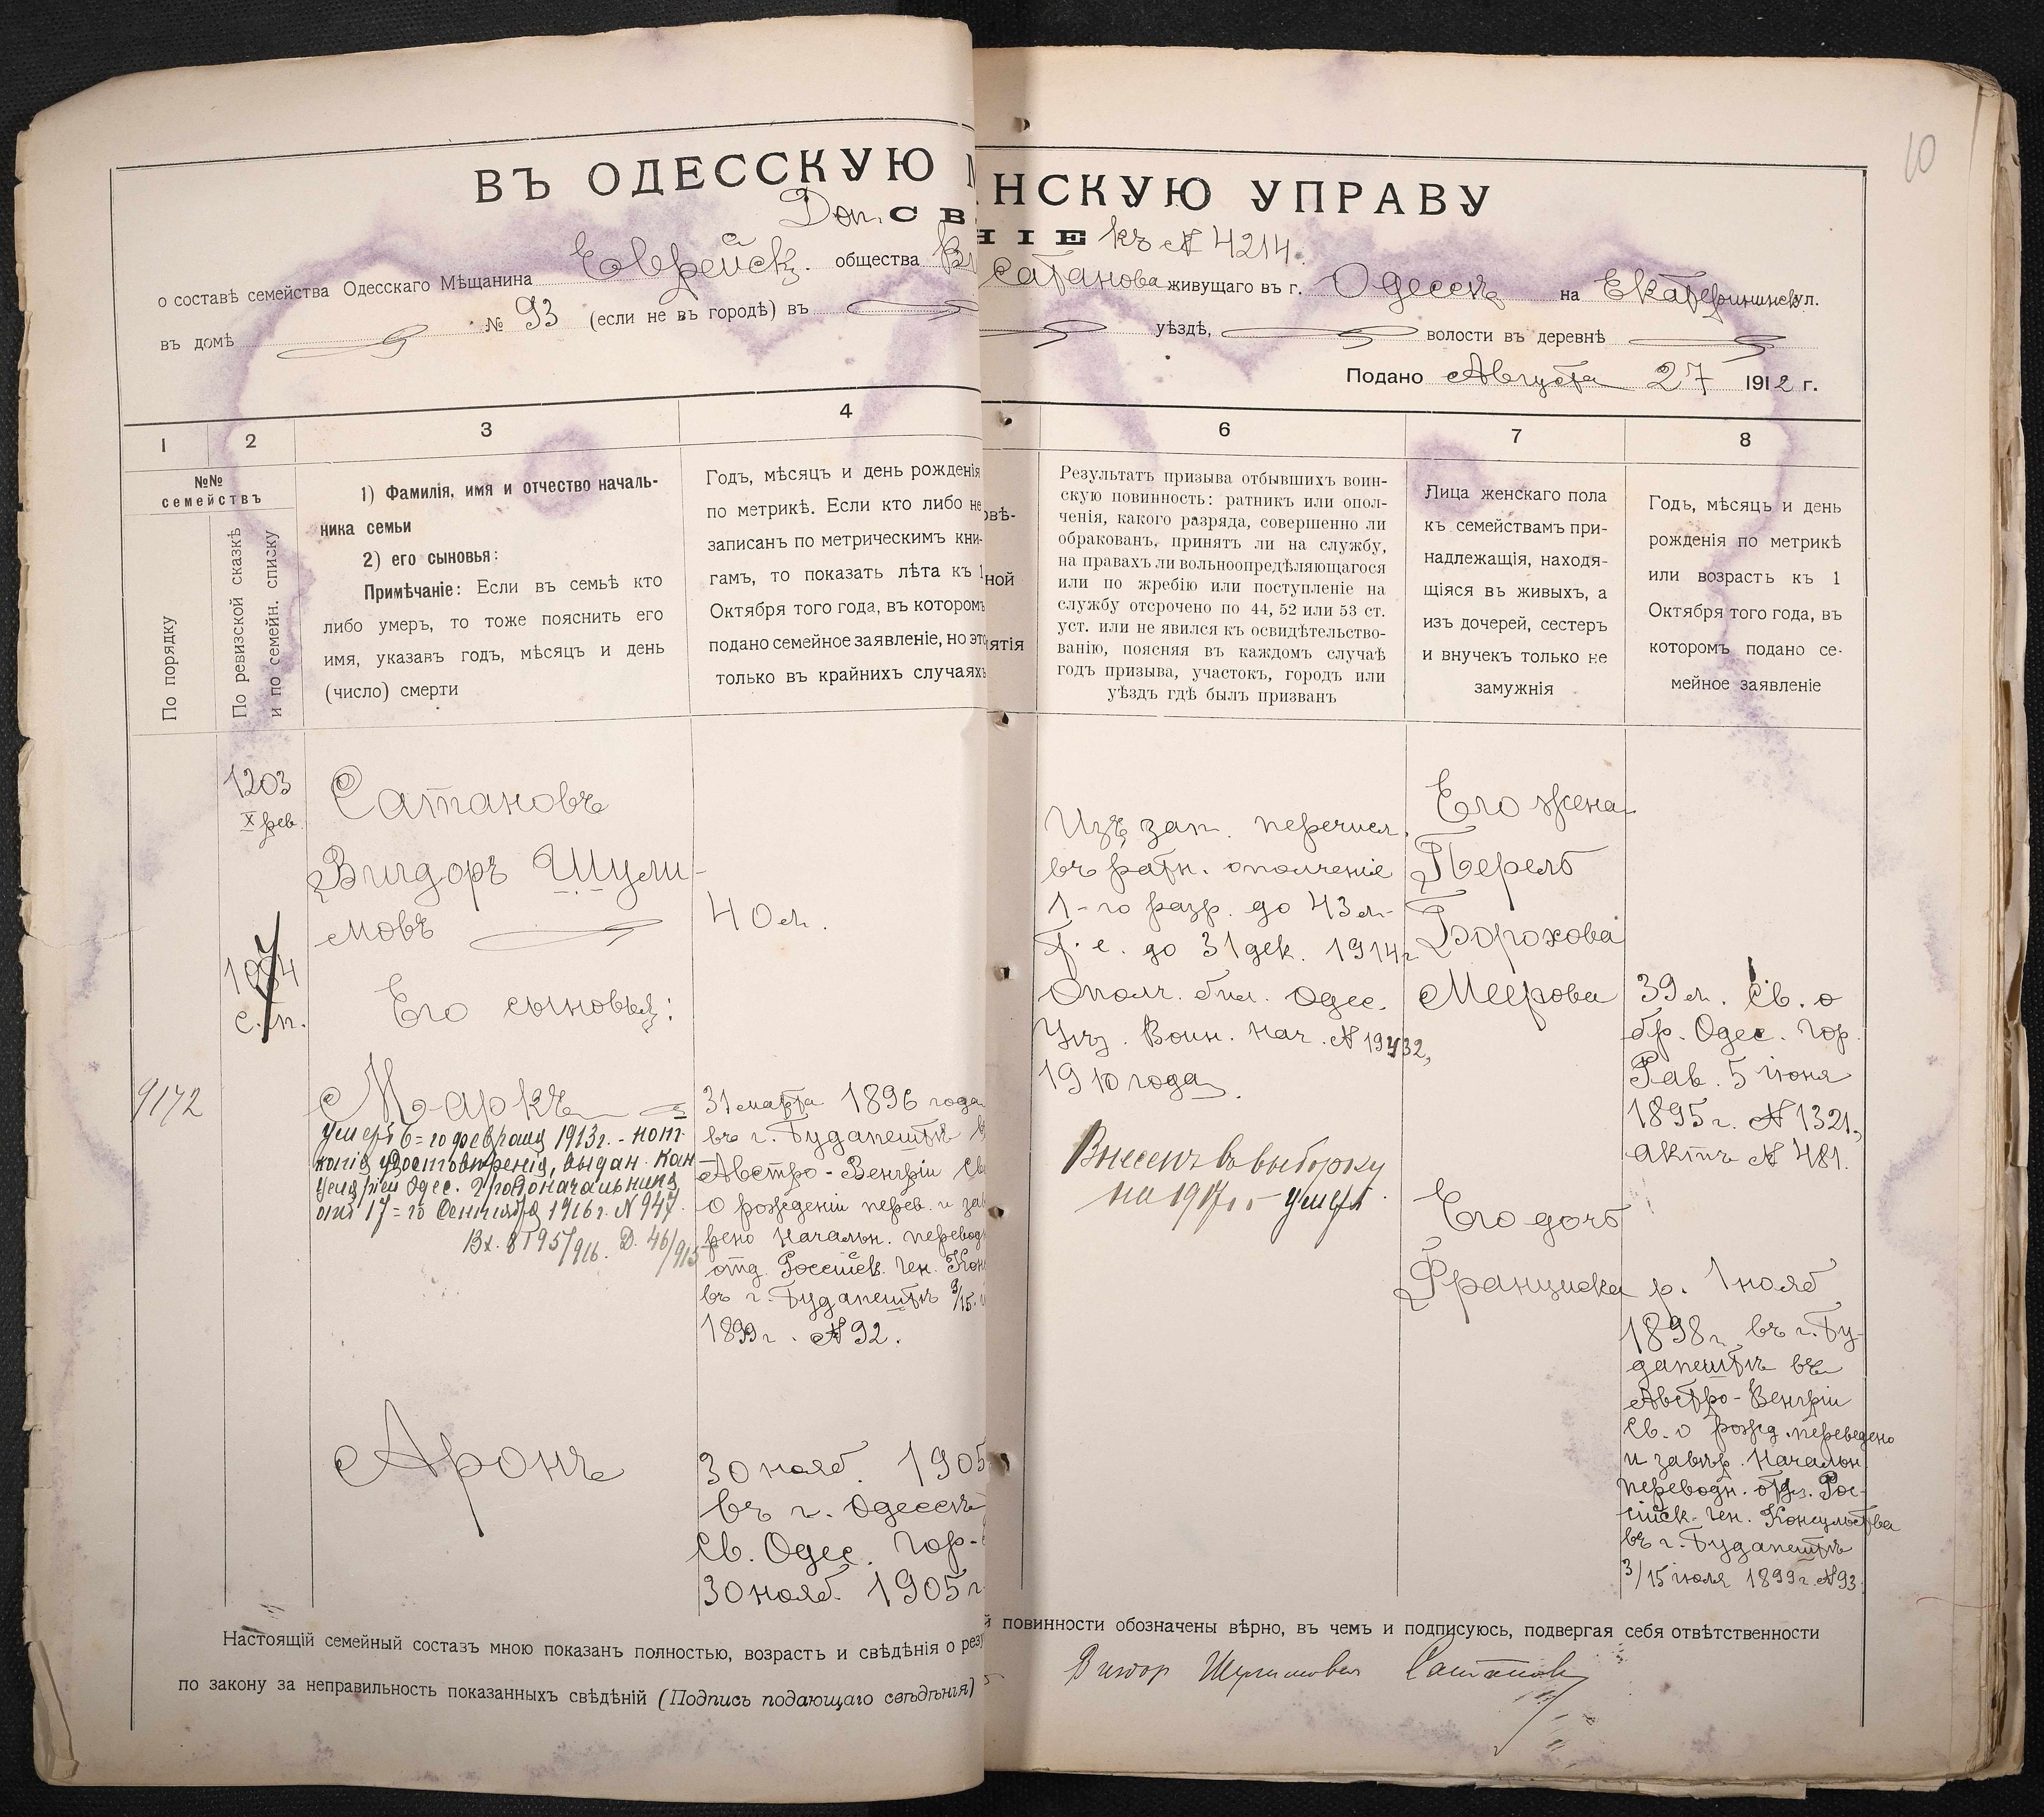 10
ВЪ ОДЕССКУЮ М НСКУЮ УПРАВУ
Доп. СВ НІЕ къ № 4214.
о составѣ семейства Одесскаго Мѣщанина Еврейск. общества Ви Сатанова живущаго въ г. Одессѣ на Екатерининск ул.
въ домѣ № 93 (если не въ городѣ) въ уѣздѣ, волости въ деревнѣ
Подано Августа 27 1912 г.
1
2
3
4
6
7
8
№№
семействъ
По порядку
По ревизской сказкѣ
и по семейн. списку
1) Фамилія, имя и отчество началь-
ника семьи
2) его сыновья:
Примѣчаніе: Если въ семьѣ кто
либо умеръ, то тоже пояснить его
имя, указавъ годъ, мѣсяцъ и день
(число) смерти
Годъ, мѣсяцъ и день рожденія
по метрикѣ. Если кто либо не
записанъ по метрическимъ кни-
гамъ, то показать лѣта къ 1
Октября того года, въ которомъ
подано семейное заявленіе, но это
только въ крайнихъ случаяхъ
овѣ-
ной
нятія
Результатъ призыва отбывшихъ воин-
скую повинность: ратникъ или опол-
ченія, какого разряда, совершенно ли
обракованъ, принятъ ли на службу,
на правахъ ли вольноопредѣляющагося
или по жребію или поступленіе на
службу отсрочено по 44, 52 или 53 ст.
уст. или не явился къ освидѣтельство-
ванію, поясняя въ каждомъ случаѣ
годъ призыва, участокъ, городъ или
уѣздъ гдѣ былъ призванъ
Лица женскаго пола
къ семействамъ при-
надлежащія, находя-
щіяся въ живыхъ, а
изъ дочерей, сестеръ
и внучекъ только не
замужнія
Годъ, мѣсяцъ и день
рожденія по метрикѣ
или возрастъ къ 1
Октября того года, въ
которомъ подано се-
мейное заявленіе
1203
X рев.
с. п.
9172
Сатановъ
Вигдоръ Шули-
мовъ
Его сыновья:
Маркъ
умеръ 6=го февраля 1913г. - нот.
копія удостовѣренія, выдан. Кан
целяріей Одес. Градоначальника
отъ 17=го Сентября 1916 г. N 947.
Вх. 8195/916. Д. 46/915
Аронъ
40 л.
31 марта 1896 года
въ г. Будапештѣ
Австро-Венгріи Св
о рожденіи перев. и зав
рено Начальн. перевод
отд. Россійск. Ген. Кон
въ г. Будапештѣ 3/15
1899 г. № 92.
30 нояб. 1905
въ г. Одессѣ
Св. Одес. Гор-
30 нояб. 1905 г
Изъ зап. перечисл.
въ ратн. ополченіе
1-го разр. до 43 л-
т. е. до 31 дек. 1914 г
Ополч. бил. Одес.
Уѣз. Воин. Нач. № 19432,
1910 года.
Внесенъ въ выборку
на 1917 г. - умеръ.
Его жена
Перель
Борохова
Меерова
Его дочь
Франциска
39 л. Св. о
бр. Одес. Гор.
Рав. 5 іюня
1895 г. № 1321,
актъ № 481.
р. 1 нояб
1898 г. въ г. Бу-
дапештѣ въ
Австро-Венгріи
Св. о рожд. переведено
и завѣр. Начальн.
переводн. отд. Рос-
сійск. Ген. Консульства
въ г. Будапештѣ
3/15 іюля 1899 г. № 93
Настоящій семейный составъ мною показанъ полностью, возрастъ и свѣдѣнія о рез й повинности обозначены вѣрно, въ чемъ и подписуюсь, подвергая себя отвѣтственности
по закону за неправильность показанныхъ свѣдѣній (Подпись подающаго свѣдѣнія)
Вигдор Шулимовъ Сатановъ